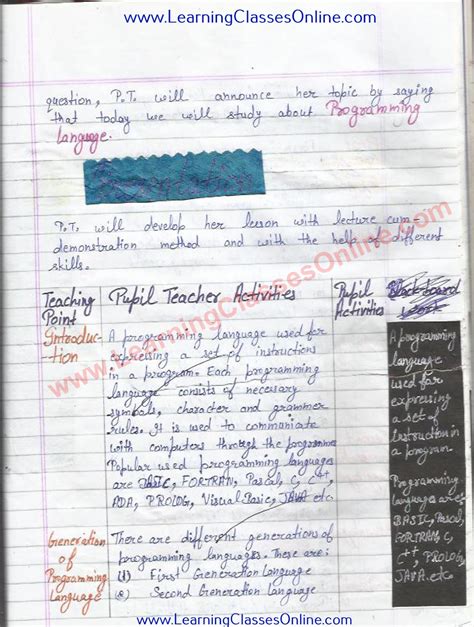 www.LearningClassesOnline.com
question, P.T. will announce her topic by saying
that today we will study about Programming
language.
P.T. will develop her lesson with lecture cum-
demonstration method and with the help of different
skills.
www.LearningClassesOnline.com
Teaching Point
Pupil Teacher Activities
Pupil Activities
Black-board
Introduc-
tion
A programming language used for
expressing a set of instructions
in a program. Each programming
language consists of necessary
symbols, character and grammer
rules. It is used to communiate
with computers through the programme
Popular used programming languages
are BASIC, FORTRAN, Pascal, C, C++,
ADA, PROLOG, Visual Basic, JAVA etc.
A programming
language
used for
expressing
a set of
Instruction in
a program
Programming
languages are
BASIC, Pascal,
FORTRAN, C,
C++, PROLOG,
JAVA. etc.
Generation
of
Programming
Language
There are different generations of
programming languages. These are:
(1) First Generation Language
(2) Second Generation Language
www.LearningClassesOnline.com